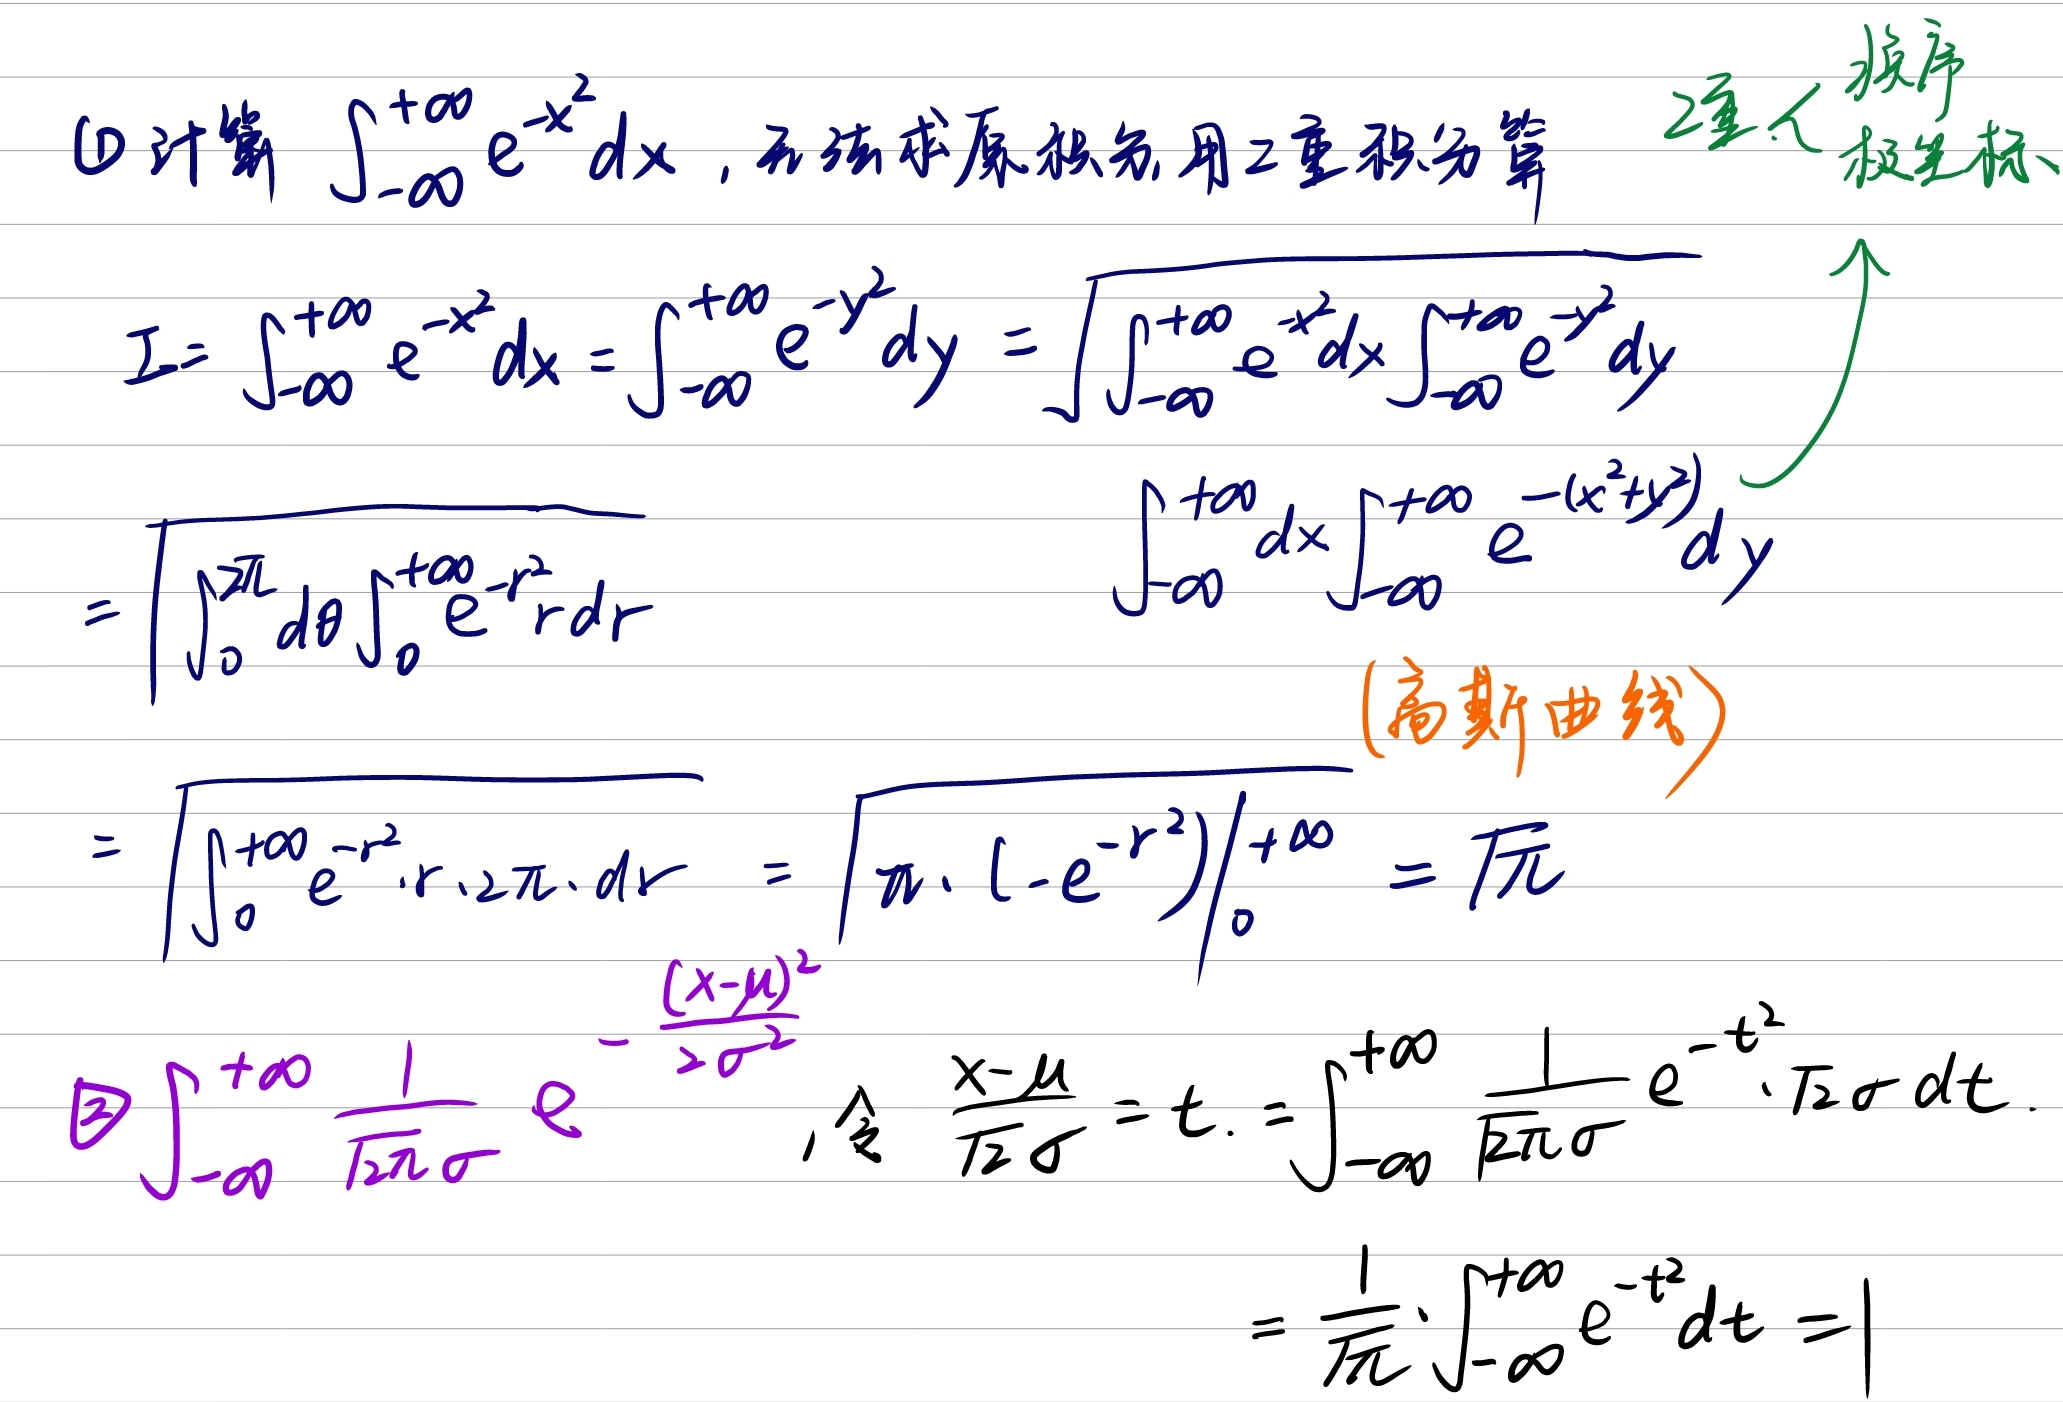 ① 计算 ∫_{-∞}^{+∞} e^{-x²} dx , 无法求原积分, 用2重积分算
2重 < 换序
极坐标
I = ∫_{-∞}^{+∞} e^{-x²} dx = ∫_{-∞}^{+∞} e^{-y²} dy = √(∫_{-∞}^{+∞} e^{-x²} dx ∫_{-∞}^{+∞} e^{-y²} dy)
∫_{-∞}^{+∞} dx ∫_{-∞}^{+∞} e^{-(x²+y²)} dy
= √(∫_0^{2π} dθ ∫_0^{+∞} e^{-r²} r dr)
(高斯曲线)
= √(∫_0^{+∞} e^{-r²} · r · 2π · dr) = √(π · (-e^{-r²}) |_0^{+∞}) = √π
② ∫_{-∞}^{+∞} 1/(√2π σ) e^{-(x-μ)²/2σ²} , 令 (x-μ)/(√2 σ) = t. = ∫_{-∞}^{+∞} 1/(√2π σ) e^{-t²} · √2 σ dt.
= 1/√π · ∫_{-∞}^{+∞} e^{-t²} dt = 1